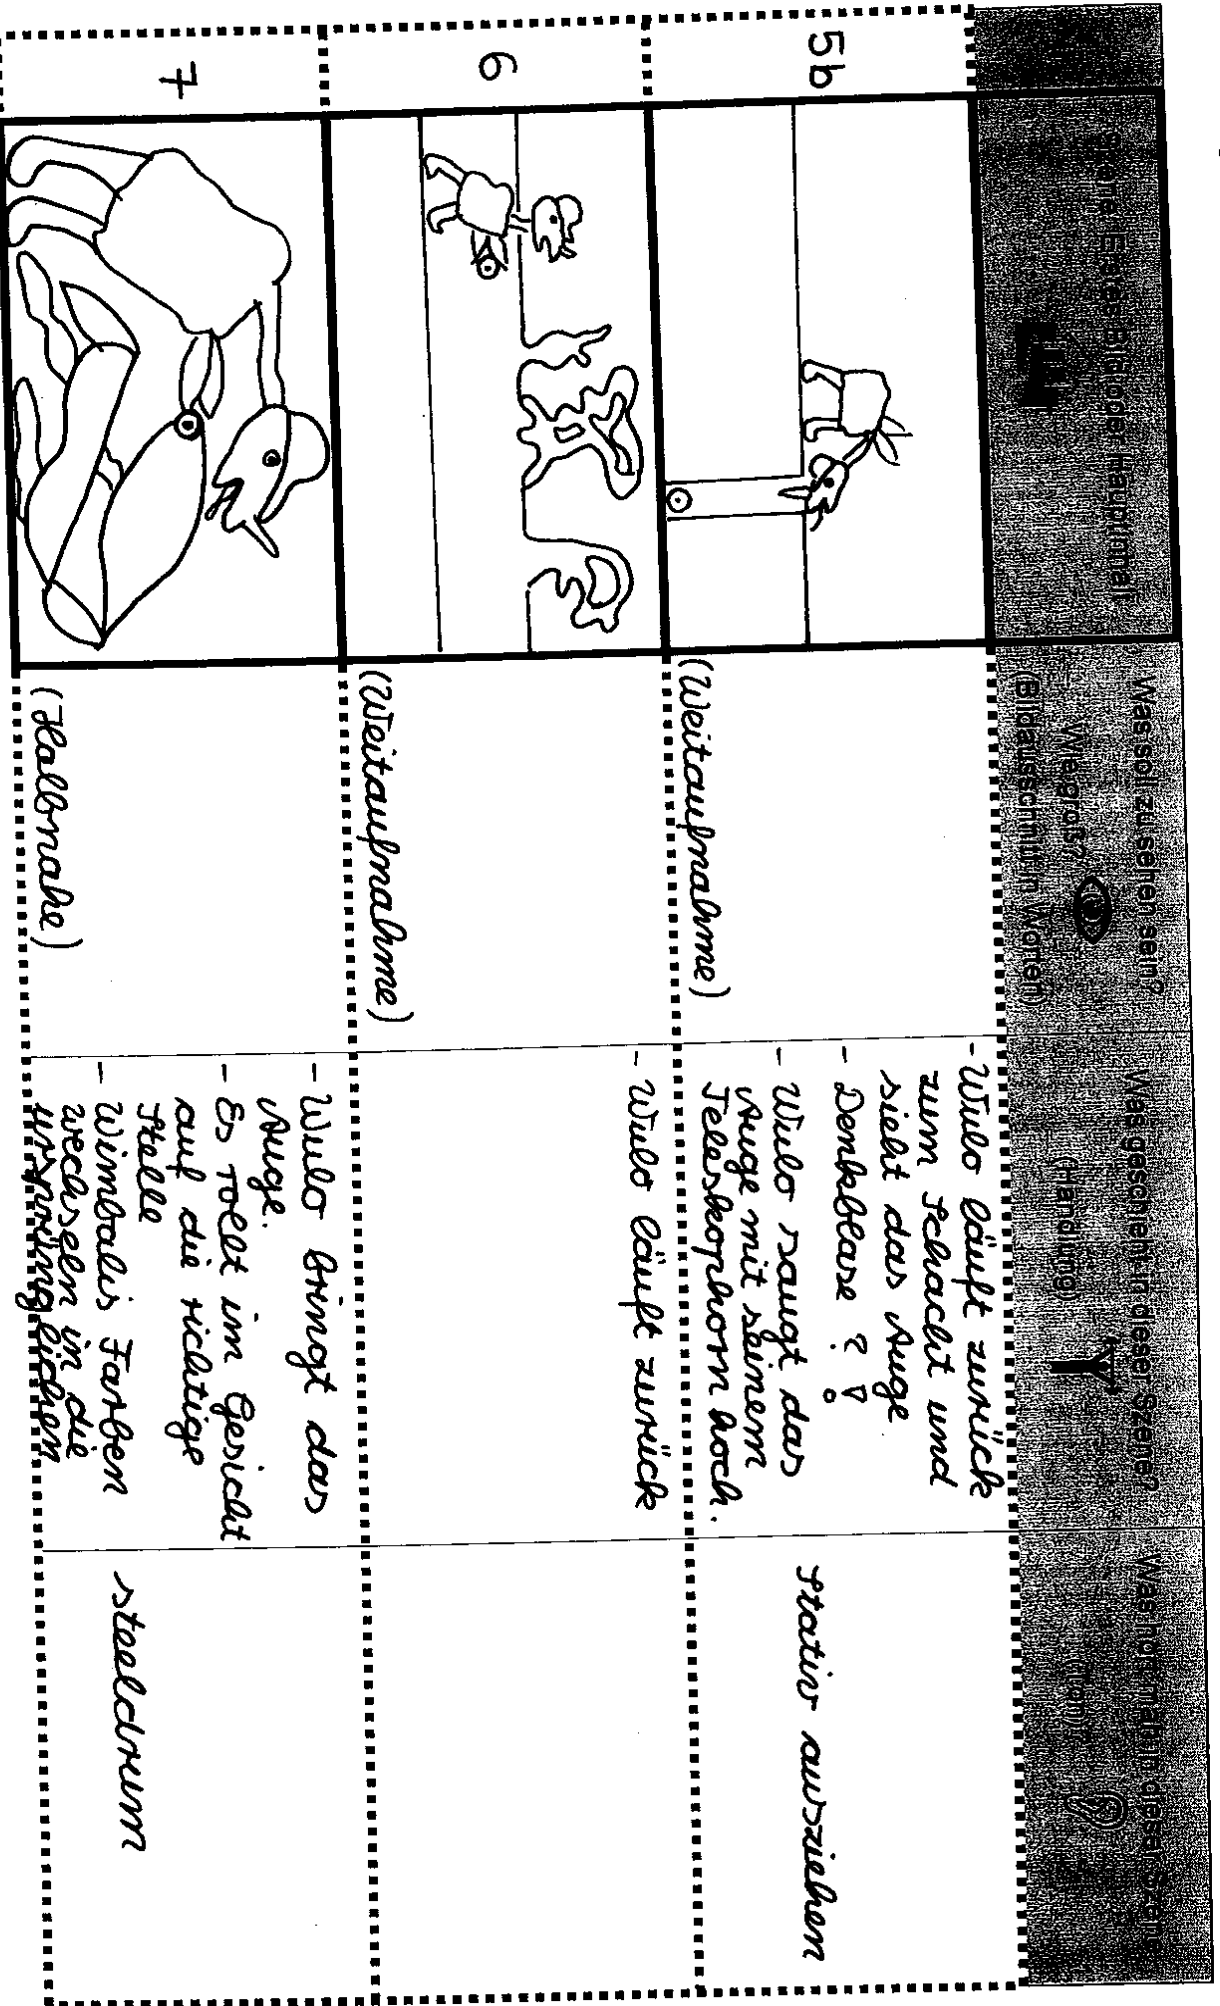 Szene (Erstes Bild oder Hauptinhalt)
Was soll zu sehen sein?
Wie groß?
(Bildausschnitt in Worten)
Was geschieht in dieser Szene?
(Handlung)
Was hört man in dieser Szene
(Ton)
5b
(Weitaufnahme)
- Wulo läuft zurück
zum Schacht und
sieht das Auge
- Denkblase ? !
- Wulo saugt das
Auge mit seinem
Teleskophorn hoch.
Stativ ausziehen
6
(Weitaufnahme)
- Wulo läuft zurück
7
(Halbnahe)
- Wulo bringt das
Auge.
- Es rollt im Gesicht
auf die richtige
Stelle
- Wimbalis Farben
wechseln in die
ursprünglichen
steeldrum